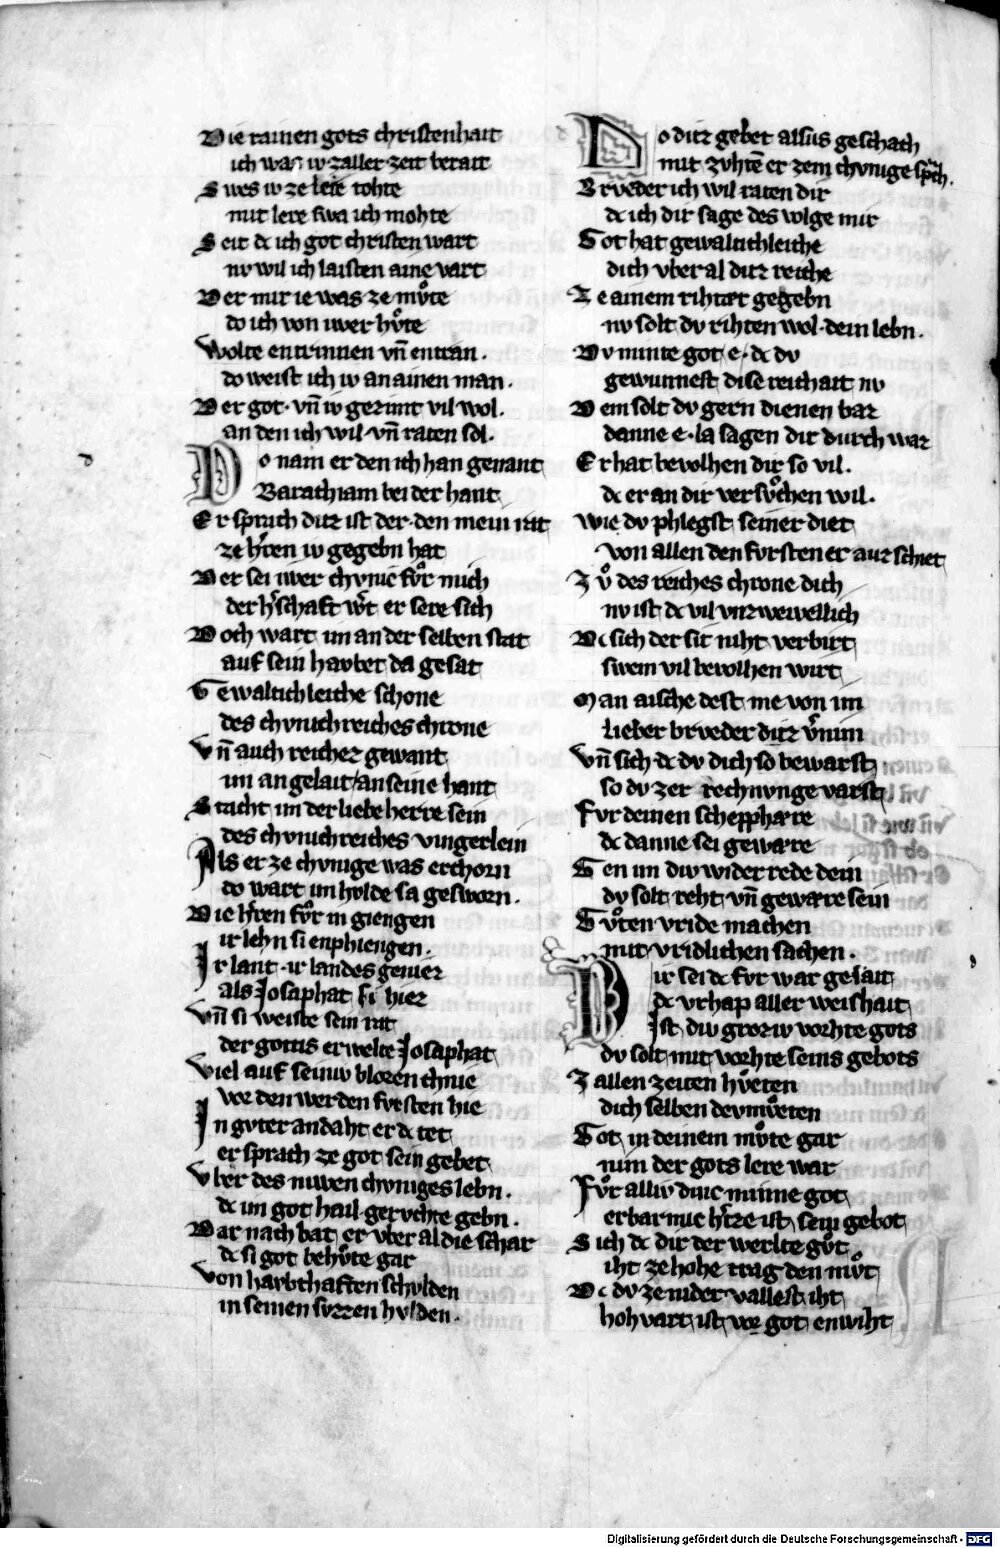 Die rainen gots christenhait
ich was iv zaller zeit berait
Swes iv ze lere tohte
mit lere swa ich mohte
Seit dc ich got christen wart
nv wil ich laisten aine vart
Der mir ie was ze mvͦte
do ich von iwer hvͦte
Wolte entrinnen vn̄ entran.
do weist ich iv an ainen man.
Der got. vn̄ iv gezimt vil wol.
an den ich wil. vn̄ raten sol.
Do nam er den ich han genant
Barachiam bei der hant
Er sprach ditz ist der. den mein rat
ze h̓ren iv gegebn hat
Der sei iwer chvnic fvͦr mich
der h̓schaft w̓t er sere sich
Doch wart im an der selben stat
auf sein havbet da gesat
Gewaltichleiche schone
des chvnichreiches chrone
Vn̄ auch reichez gewant
im angelait an seine hant
Stacht im der liebe herre sein
des chvnichreiches vingerlein
Als er ze chvnige was erchorn
do wart im hvlde sa gesworn.
Die h̓ren fvͦr in giengen
ir lehn si enphiengen.
Ir lant. ir landes gemer
als Josaphat si hiez
Vn̄ si weiste sein rat
der gottis erwelte Josaphat
Viel auf seiniv blozen chnie
vor den werden fvrsten hie
In gvter andaht er dc tet
er sprach ze got sein gebet
Vber des niwen chvniges lebn.
dc im got hail gervchte gebn.
Dar nach bat er vber al die schar
dc si got behvͦte gar
Von havbthaften schvlden
in seinen svzzen hvlden.
Do ditz gebet alsus geschach
mit zvhtē er zem chvnige sprach.
Brveder ich wil raten dir
dc ich dir sage des volge mir
Got hat gewaltichleiche
dich vber al ditz reiche
Ze ainem rihtær gegebn
nv solt dv rihten wol. dein lebn.
Dv minte got e. dc dv
gewunnest dise reichait nv
Dem solt dv gern dienen baz
danne e. la sagen dir dvrch waz
Er hat bevolhen dir so vil.
dc er an dir versvͦchen wil.
Wie dv phlegst seiner diet
von allen den fvrsten er auz schiet
Zvͦ des reiches chrone dich
nv ist dc vil vnzweivellich
Dc sich der sit niht verbirt
swem vil bevolhen wirt
Man aische dest me von im
lieber brveder ditz v̓nim
Vn̄ sich dc dv dich so bewarst
so dv zer rechnvnge varst
Fvr deinen scheppfære
dc danne sei gewære
Gen im div widerrede dein
dv solt reht vn̄ gewære sein
Gvͦten vride machen
mit vridlichen sachen.
Dir sei dc fvr war gesait
dc vrhap aller weishait
Ist div groziv vorhte gots
dv solt mit vorhte seins gebots
Zallen zeiten hvͤten
dich selben devmvͤten
Got in deinem mvͦte gar
nim der gots lere war
Fvͦr alliv dinc minne got
erbarmic h̓tze ist sein gebot
Sich dc dir der werlte gvͦt
iht ze hohe trag den mvͦt
Dc dv ze nider vallest iht
hohvart ist vor got enwiht
Digitalisierung gefördert durch die Deutsche Forschungsgemeinschaft - DFG